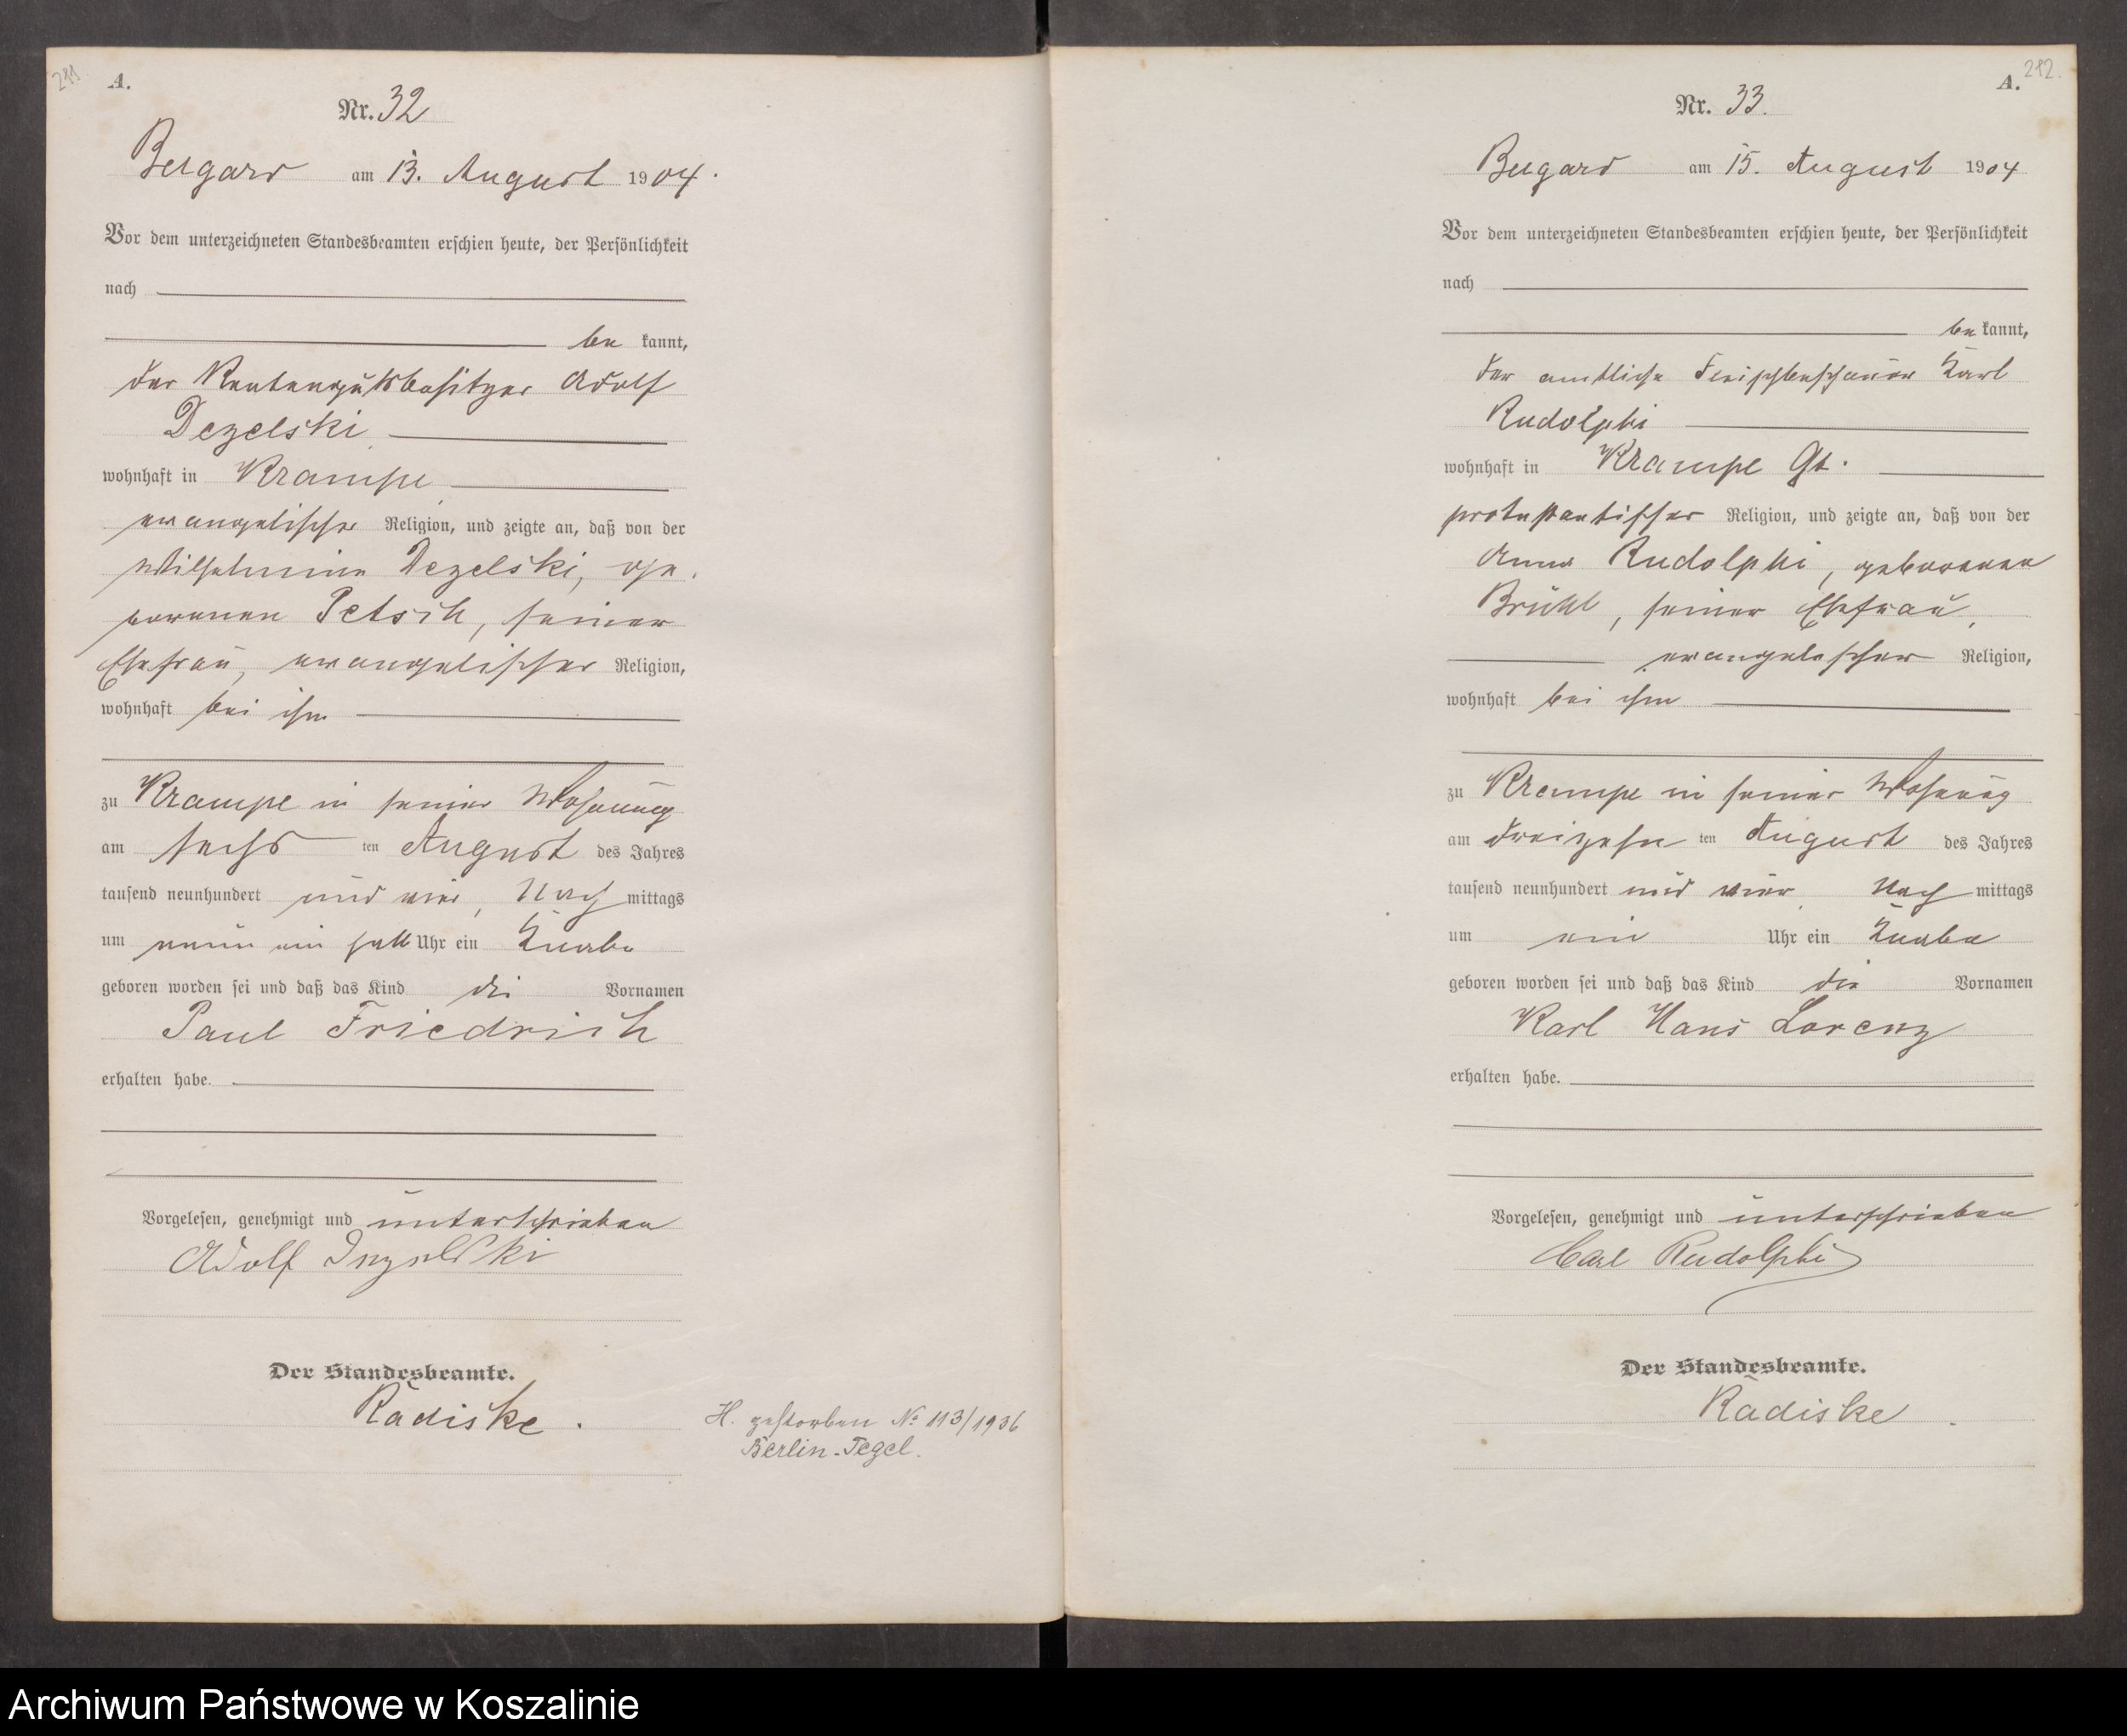 211
A.
Nr. 32
Beßgard am 13. August 1904.
Vor dem unterzeichneten Standesbeamten erschien heute, der Persönlichkeit
nach
be kannt,
der Rentengutsbesitzer Adolf
Dezelski
wohnhaft in Krampe
evangelischer Religion, und zeigte an, daß von der
Wilhelmine Dezelski, ge-
borenen Petsch, seiner
Ehefrau, evangelischer Religion,
wohnhaft bei ihm
zu Krampe in seiner Wohnung
am sechs ten August des Jahres
tausend neunhundert und vier, Nach mittags
um neun ein halb Uhr ein Knabe
geboren worden sei und daß das Kind die Vornamen
Paul Friedrich
erhalten habe.
Vorgelesen, genehmigt und unterschrieben
Adolf Dezelski
Der Standesbeamte.
Radiske.
H. gestorben № 113/1936
Berlin-Tegel.
212.
A.
Nr. 33.
am 15. August 1904
Vor dem unterzeichneten Standesbeamten erschien heute, der Persönlichkeit
nach
be kannt,
der amtliche Fleischbeschauer Karl
Rudolphi
wohnhaft in Krampe Gt.
protestantischer Religion, und zeigte an, daß von der
Anna Rudolphi, geborenen
Brühl, seiner Ehefrau,
evangelischer Religion,
wohnhaft bei ihm
zu Krampe in seiner Wohnung
am dreizehn ten August des Jahres
tausend neunhundert und vier, Nach mittags
um ein Uhr ein Knabe
geboren worden sei und daß das Kind die Vornamen
Karl Hans Lorenz
erhalten habe.
Vorgelesen, genehmigt und unterschrieben
Carl Rudolphi
Der Standesbeamte.
Radiske.
Archiwum Państwowe w Koszalinie